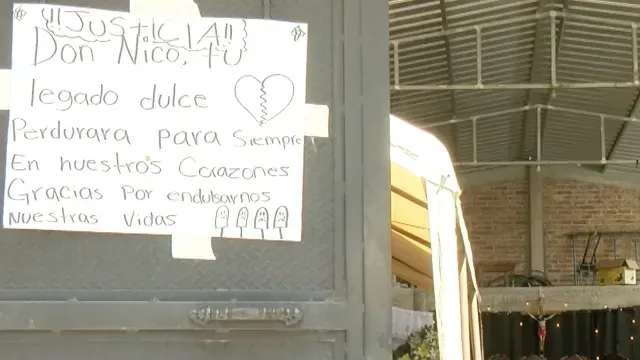 ¡¡JUSTICIA!!
Don Nico, tu
legado dulce
Perdurara para Siempre
En nuestros Corazones
Gracias Por endulsarnos
Nuestras Vidas